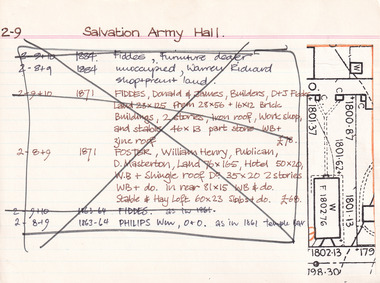 2-9 Salvation Army Hall.
2-9+10 1884. Fiddes, Furniture dealer
2-8+9 1884 unoccupied, Warren Richard
shop+prem't land.
2-9+10 1871 FIDDES, Donald & James, Builders, D+J Fiddes
Land 28x115 from 28x56 + 16x12 Brick
Buildings, 2 stories, Iron roof, Workshop,
and stables 46x13 part stone WB+
zinc roof. £78.
2-8+9 1871 FOSTER, William Henry, Publican,
D. Masterton, Land 76x165, Hotel 50x20,
W.B + Shingle roof Do 35x20 2 stories
WB + do. in rear 81x15 WB & do.
Stable & Hay Loft 60x23 Slabs + do. £68.
2-9+10 1863-64 FIDDES. as in 1861.
2-8-19 1863-64 PHILIPS Wm, O+O. as in 1861 Temple Bar
W
C
C
1801·37
1800·87
1801·62
1801·13
F 1802·76
W
1802·13
179
798·30